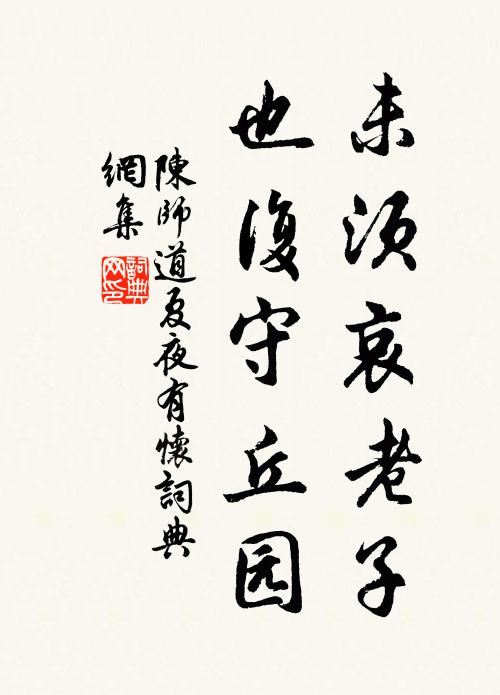 未須哀老子
也復守丘园
陳師道夏夜有懷詞典
網集
詞典
网印